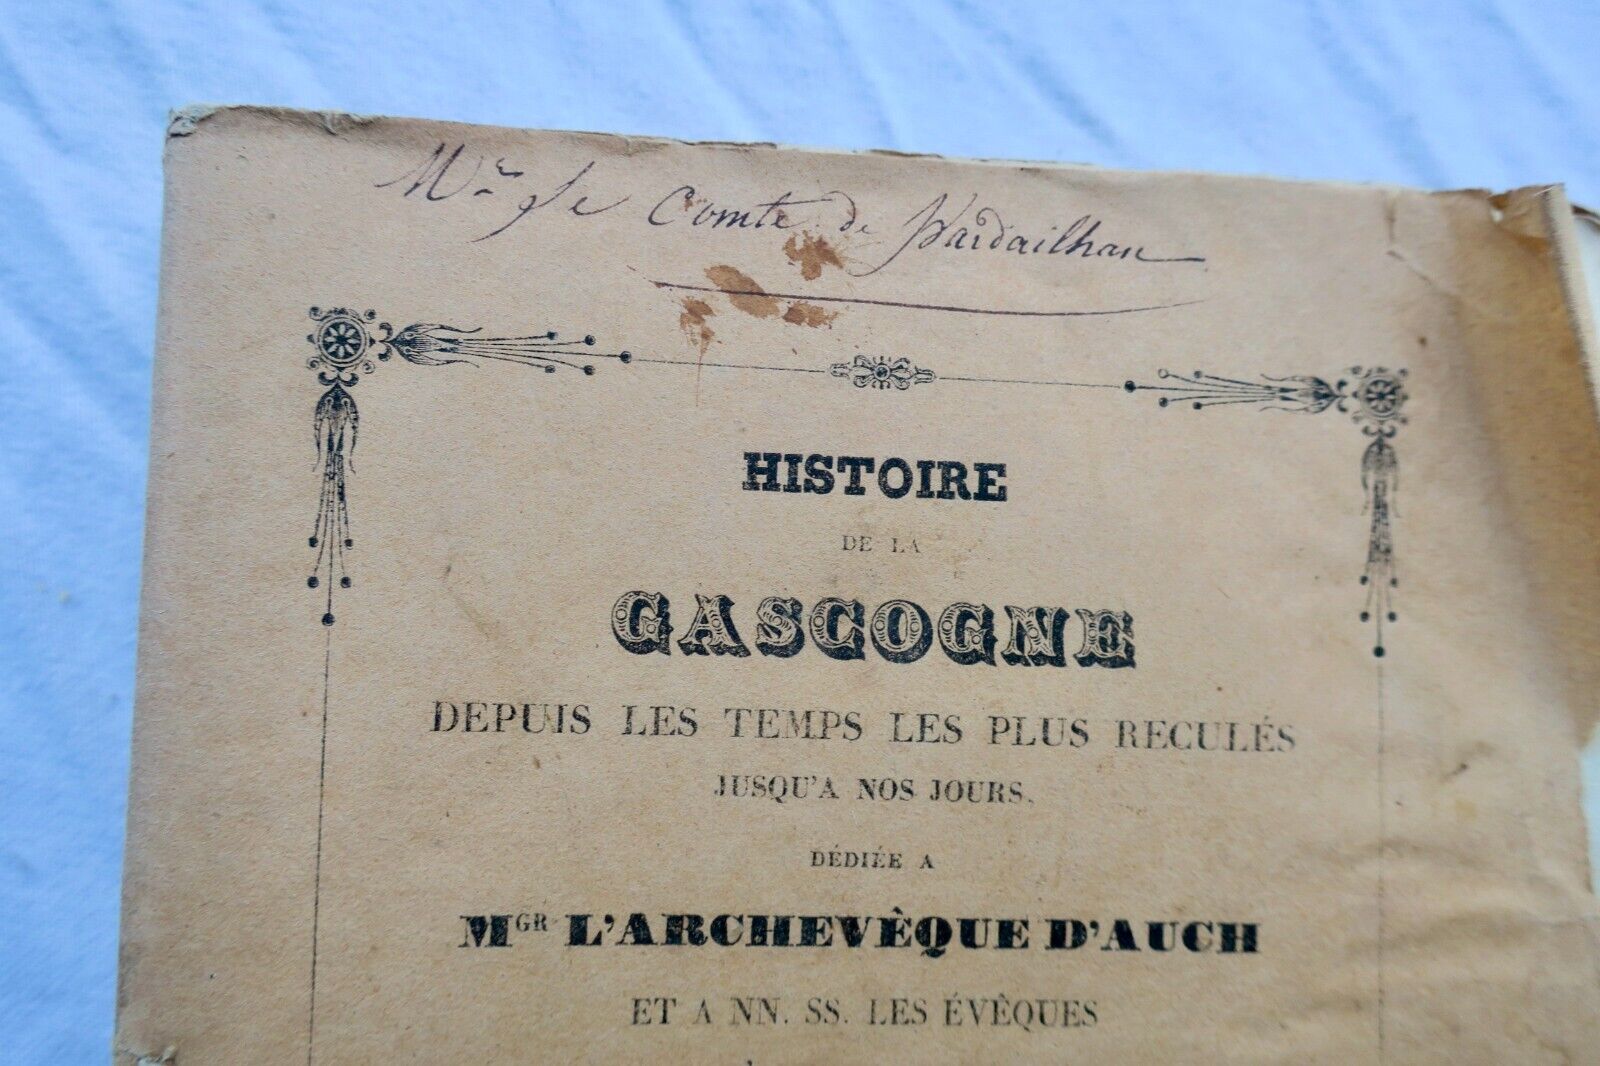 Mr. le Comte de Pardailhan
HISTOIRE
DE LA
GASCOGNE
DEPUIS LES TEMPS LES PLUS RECULÉS
JUSQU'A NOS JOURS,
DÉDIÉE A
MGR L'ARCHEVÊQUE D'AUCH
ET A NN. SS. LES ÉVÊQUES